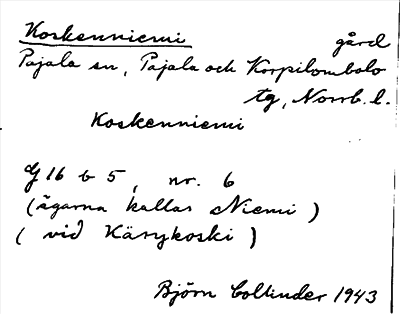 Koskenniemi gård
Pajala sn, Pajala och Korpilombolo
tg, Norrb. l.
Koskenniemi
G 16 b 5, nr. 6
(ägarna kallas Niemi)
(vid Kärykoski)
Björn Collinder 1943